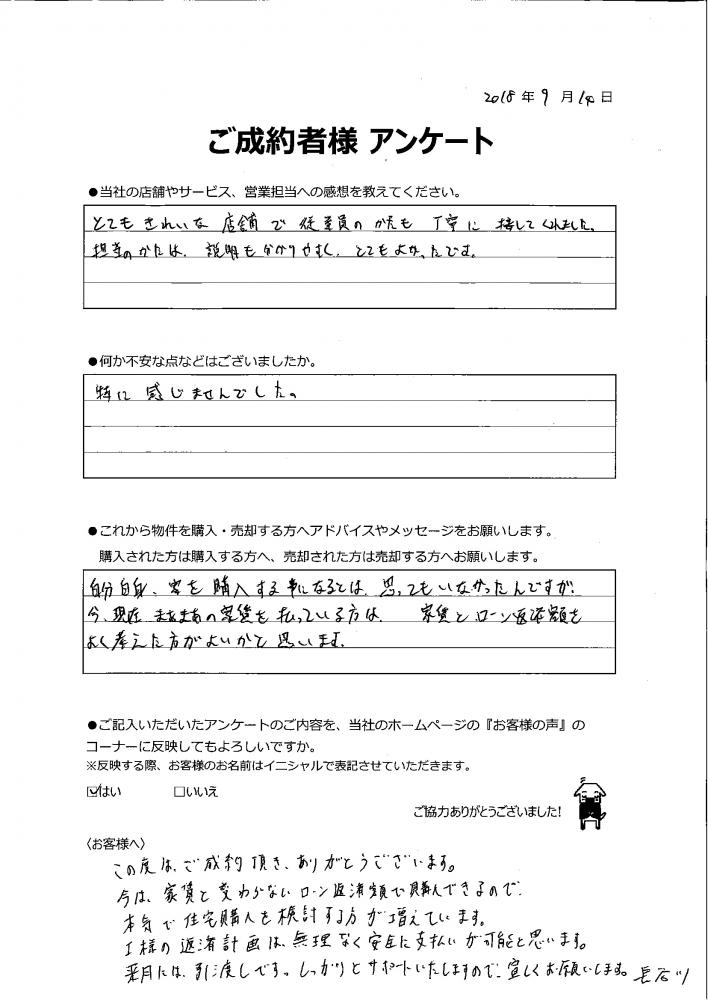 2018年9月14日
ご成約者様 アンケート
●当社の店舗やサービス、営業担当への感想を教えてください。
とてもきれいな店舗で従業員のかたも丁寧に接してくれました。
担当のかたは、説明も分かりやすく、とてもよかったです。
●何か不安な点などはございましたか。
特に感じませんでした。
●これから物件を購入・売却する方へアドバイスやメッセージをお願いします。
購入された方は購入する方へ、売却された方は売却する方へお願いします。
自分自身、家を購入する事になるとは、思ってもいなかったんですが、
今、現在まあまあの家賃を払っている方は、 家賃とローン返済額を
よく考えた方がよいかと思います。
●ご記入いただいたアンケートのご内容を、当社のホームページの『お客様の声』の
コーナーに反映してもよろしいですか。
※反映する際、お客様のお名前はイニシャルで表記させていただきます。
☑はい □いいえ
ご協力ありがとうございました!
〈お客様へ〉
この度は、ご成約頂き、ありがとうございます。
今は、家賃と変わらないローン返済額で購入できるので、
本気で住宅購入を検討する方が増えています。
I様の返済計画は、無理なく安全に支払いが可能と思います。
来月には、引渡しです。しっかりとサポートいたしますので、宜しくお願いします。長谷川